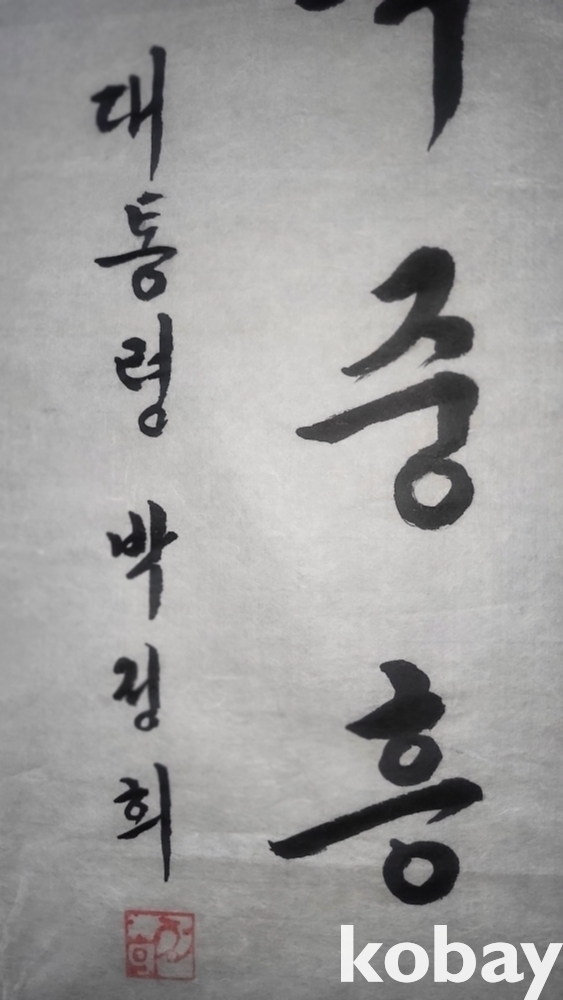 중흥
대통령 박정희
kobay